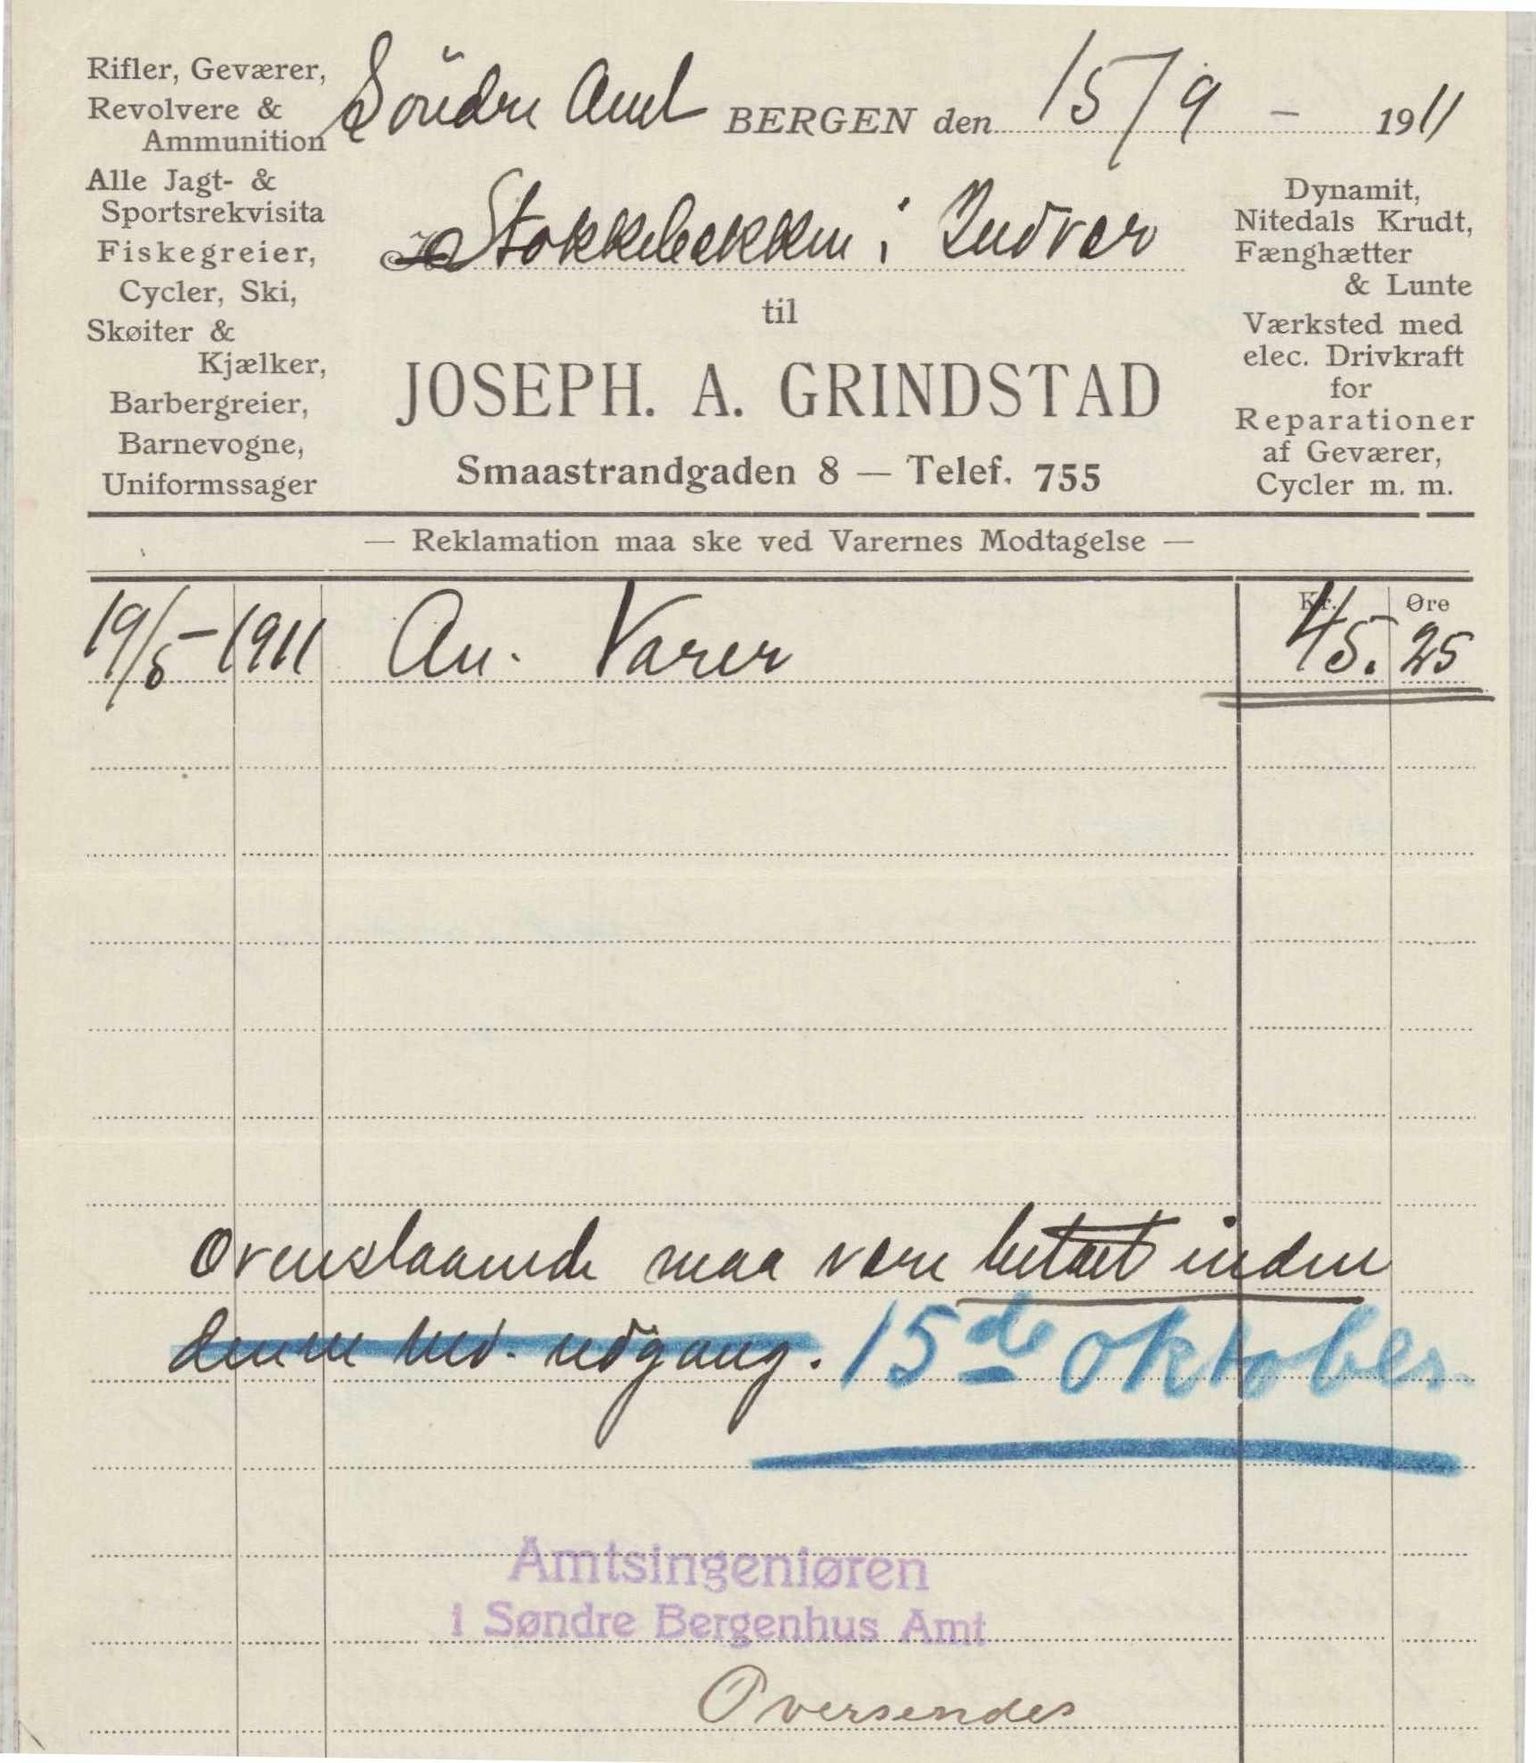 Rifler, Geværer,
Revolvere &
Ammunition
Alle Jagt- &
Sportsrekvisita
Fiskegreier,
Cycler, Ski,
Skøiter &
Kjælker,
Barbergreier,
Barnevogne,
Uniformssager
Söndre Amt BERGEN den 15/9 - 1911
Stokkebækken i
til
JOSEPH. A. GRINDSTAD
Smaastrandgaden 8 — Telef. 755
Dynamit,
Nitedals Krudt,
Fænghætter
& Lunte
Værksted med
elec. Drivkraft
for
Reparationer
af Geværer,
Cycler m. m.
— Reklamation maa ske ved Varernes Modtagelse —
Kr. Øre
19/5-1911 An. Varer 45. 25
Ovenstaaende maa være betalt inden
denne md. udgang. 15de oktober
Amtsingeniøren
i Søndre Bergenhus Amt
Oversendes